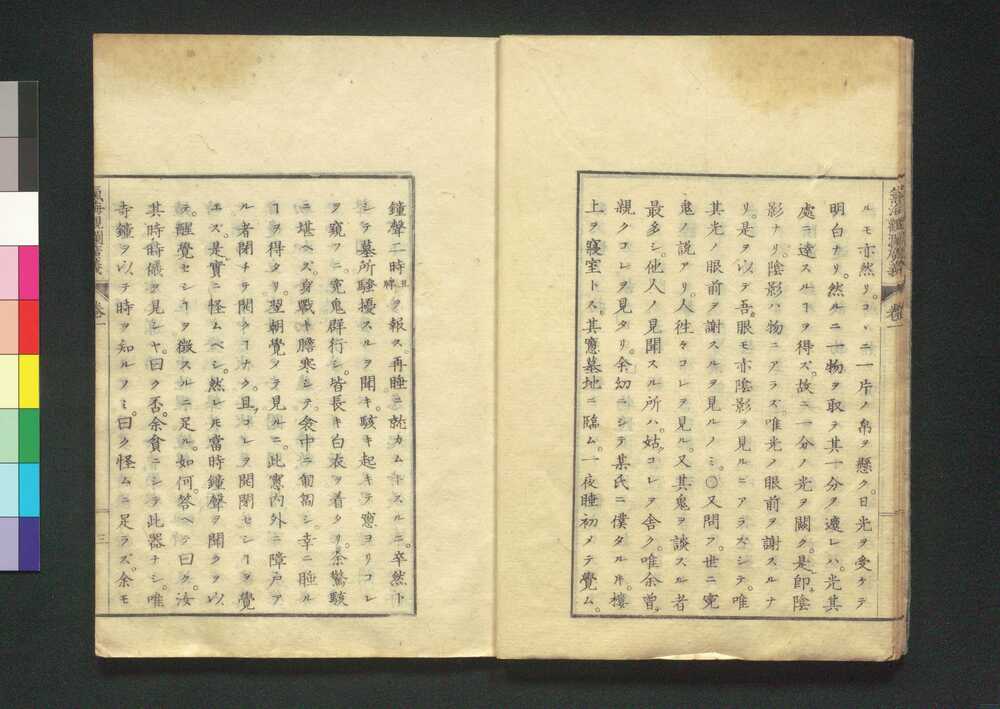 ルモ亦然リ。コヽニ一片ノ帛ヲ懸ク。日光ヲ受ケテ
明白ナリ。然ルニ一物ヲ取テ其一分ヲ遮レハ。光其
處ニ達スルヿヲ得ズ。故ニ一分ノ光ヲ闕ク。是即陰
影ナリ。陰影ハ物ニアラズ。唯光ノ眼前ヲ謝スルナ
リ。是ヲ以テ吾眼モ亦陰影ヲ見ルニアラズシテ。唯
其光ノ眼前ヲ謝スルヲ見ルノミ。〇又問フ。世ニ寃
鬼ノ説アリ。人徃々コレヲ見ル。又其鬼ヲ談スル者
最多シ。他人ノ見聞スル所ハ。姑コレヲ舎ク。唯余曽
親クコレヲ見タリ。余幼ニシテ某氏ニ僕タルㇳキ。樓
上ヲ寢室トス。其窻墓地ニ臨ム。一夜睡初メテ覺ム。
巻一
鐘聲二時ヲ報ス。再睡ニ就カムトスルニ。卒然ト
シテ墓所騒擾スルヲ聞キ。駭キ起キテ窻ヨリコレ
ヲ窺フニ。寃鬼群行シ。皆長キ白衣ヲ着タリ。余驚駭
ニ堪ヘズ。身戰キ膽寒シテ。衾中ニ匍匐シ。幸ニ睡ル
ヿヲ得タリ。翌朝覺メテ見ルニ。此窻内外ニ障戸ア
ル者閉チテ開クヿナク。且コレヲ開閉セシヿヲ覺
エズ。是實ニ怪ムベシ。然レ𪜈當時鐘聲ヲ聞クヲ以
テ。醒覺セシヿヲ徴スルニ足ル。如何。答ヘテ曰ク。汝
其時時礮ヲ見シヤ。曰ク否。余貧ニシテ此器ナシ。唯
寺鐘ヲ以テ時ヲ知ルノミ。曰ク怪ムニ足ラズ。余モ
巻一
三